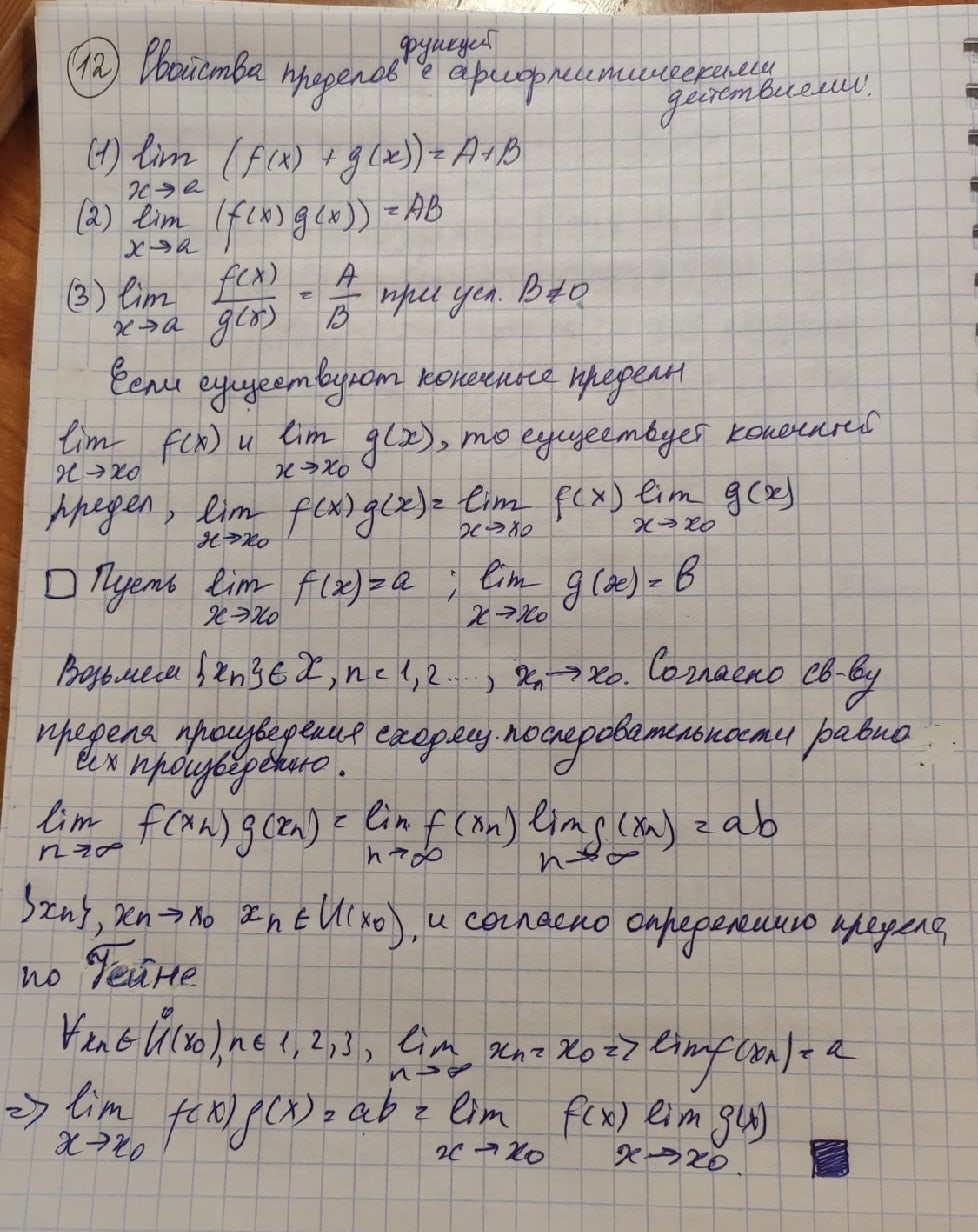 (12) Свойства пределов функций с арифмитическими
действиями.
(1) lim (f(x) + g(x)) = A+B
x→a
(2) lim (f(x) g(x)) = AB
x→a
(3) lim f(x)/g(x) = A/B при усл. B≠0
x→a
Если существуют конечные пределы
lim f(x) и lim g(x), то существует конечный
x→x₀ x→x₀
предел, lim f(x) g(x) = lim f(x) lim g(x)
x→x₀ x→x₀ x→x₀
□ Пусть lim f(x) = a ; lim g(x) = b
x→x₀ x→x₀
Возьмем {xₙ} ∈ X, n = 1, 2 ..., xₙ→x₀. Согласно св-ву
предела произведения сходящ. последовательности равна
их произведению.
lim f(xₙ) g(xₙ) = lim f(xₙ) lim g(xₙ) = ab
n→∞ n→∞ n→∞
{xₙ}, xₙ→x₀ xₙ ∈ U(x₀), и согласно определению предела
по Гейне
∀xₙ ∈ Ů(x₀), n ∈ 1, 2, 3, lim xₙ = x₀ => lim f(xₙ) = a
n→∞
=> lim f(x) g(x) = ab = lim f(x) lim g(x)
x→x₀ x→x₀ x→x₀.